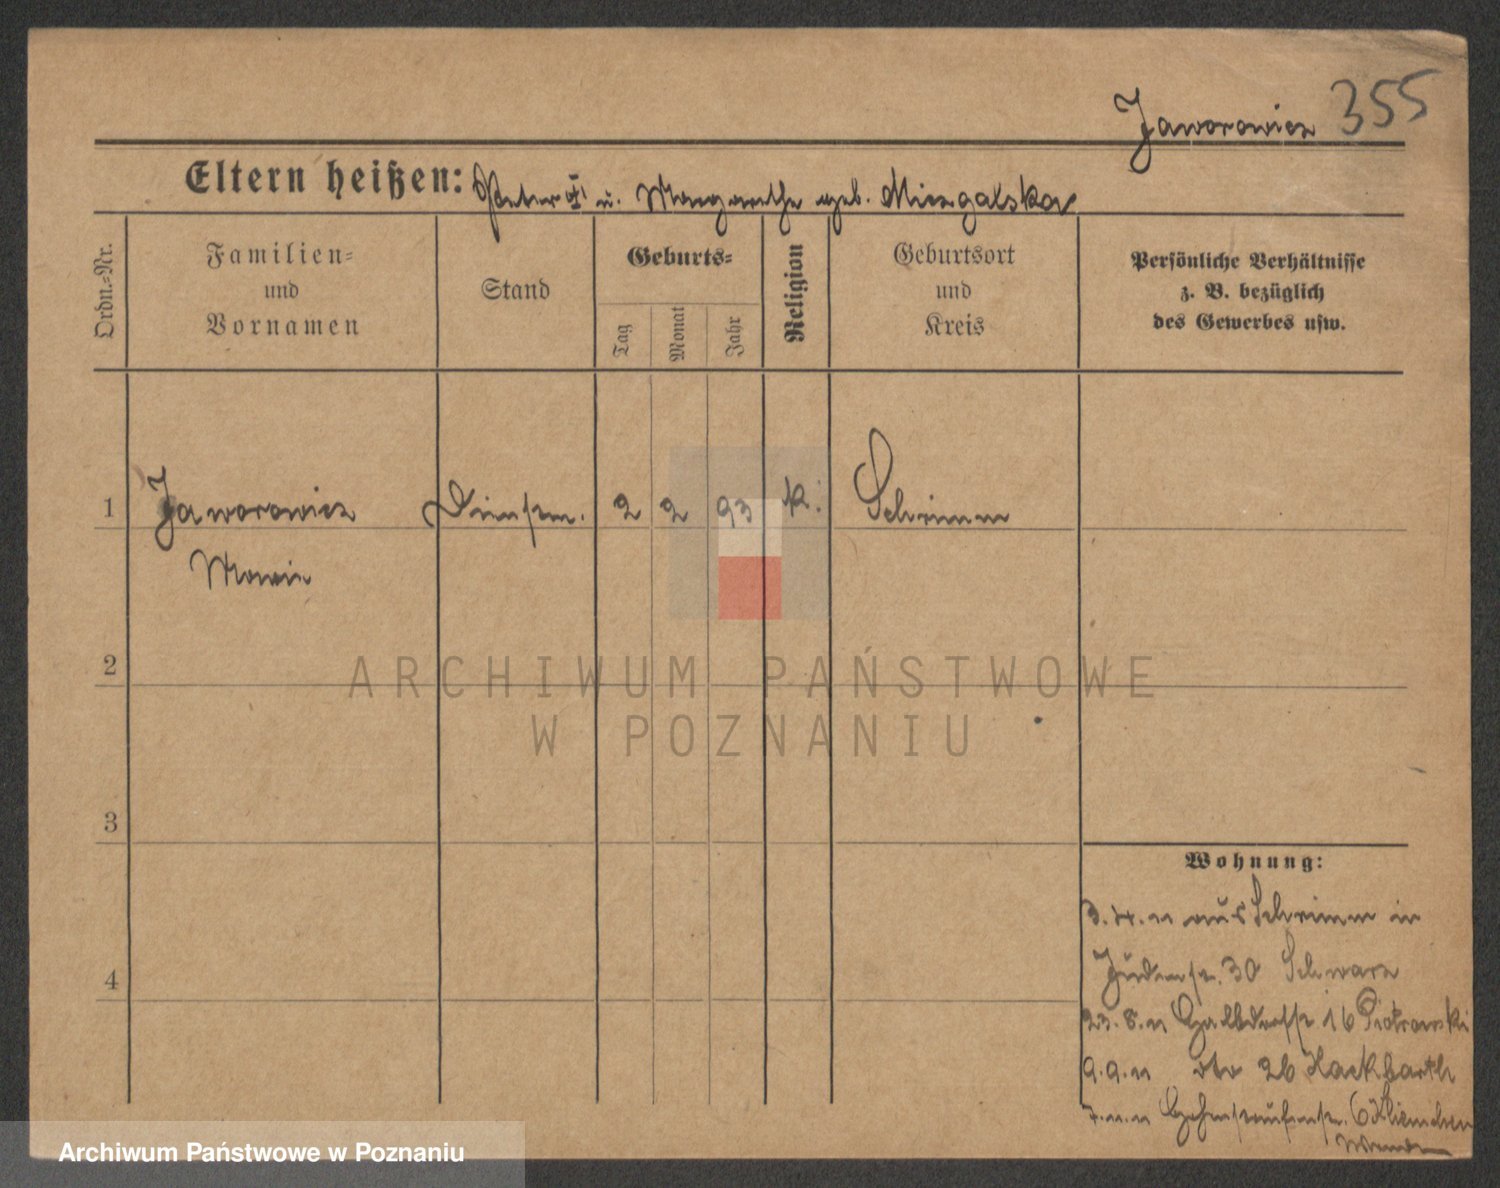 Jaworowicz 355
Eltern heißen: Peter u. Margarethe geb. Miezgalska
Ordn.=Nr.
Familien=
und
Vornamen
Stand
Geburts=
Tag
Monat
Jahr
Religion
Geburtsort
und
Kreis
Persönliche Verhältnisse
z. B. bezüglich
des Gewerbes usw.
1 Jaworowicz Dienstm. 2 2 93 k. Schrimm
Maria
2
3
4
ARCHIWUM PAŃSTWOWE
W POZNANIU
Wohnung:
3.4.11 aus Schrimm in
Judenstr. 30 Schwarz
23.8.11 16 Piotrowski
9.9.11 dto 26 Hackbarth
7.11.11 6
Wenden
Archiwum Państwowe w Poznaniu